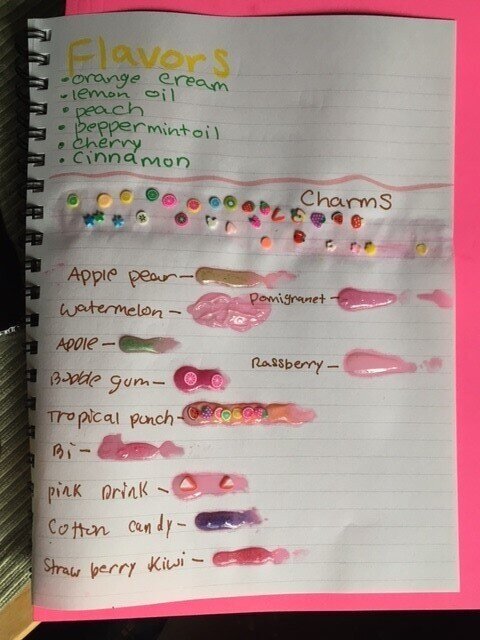 Flavors
• orange cream
• lemon oil
• peach
• peppermint oil
• cherry
• Cinnamon
Charms
Apple pear –
Pomigranet –
Watermelon –
Apple –
Rassberry –
Bobble gum –
Tropical punch –
Bi –
pink Drink –
Cotton candy –
Straw berry kiwi –